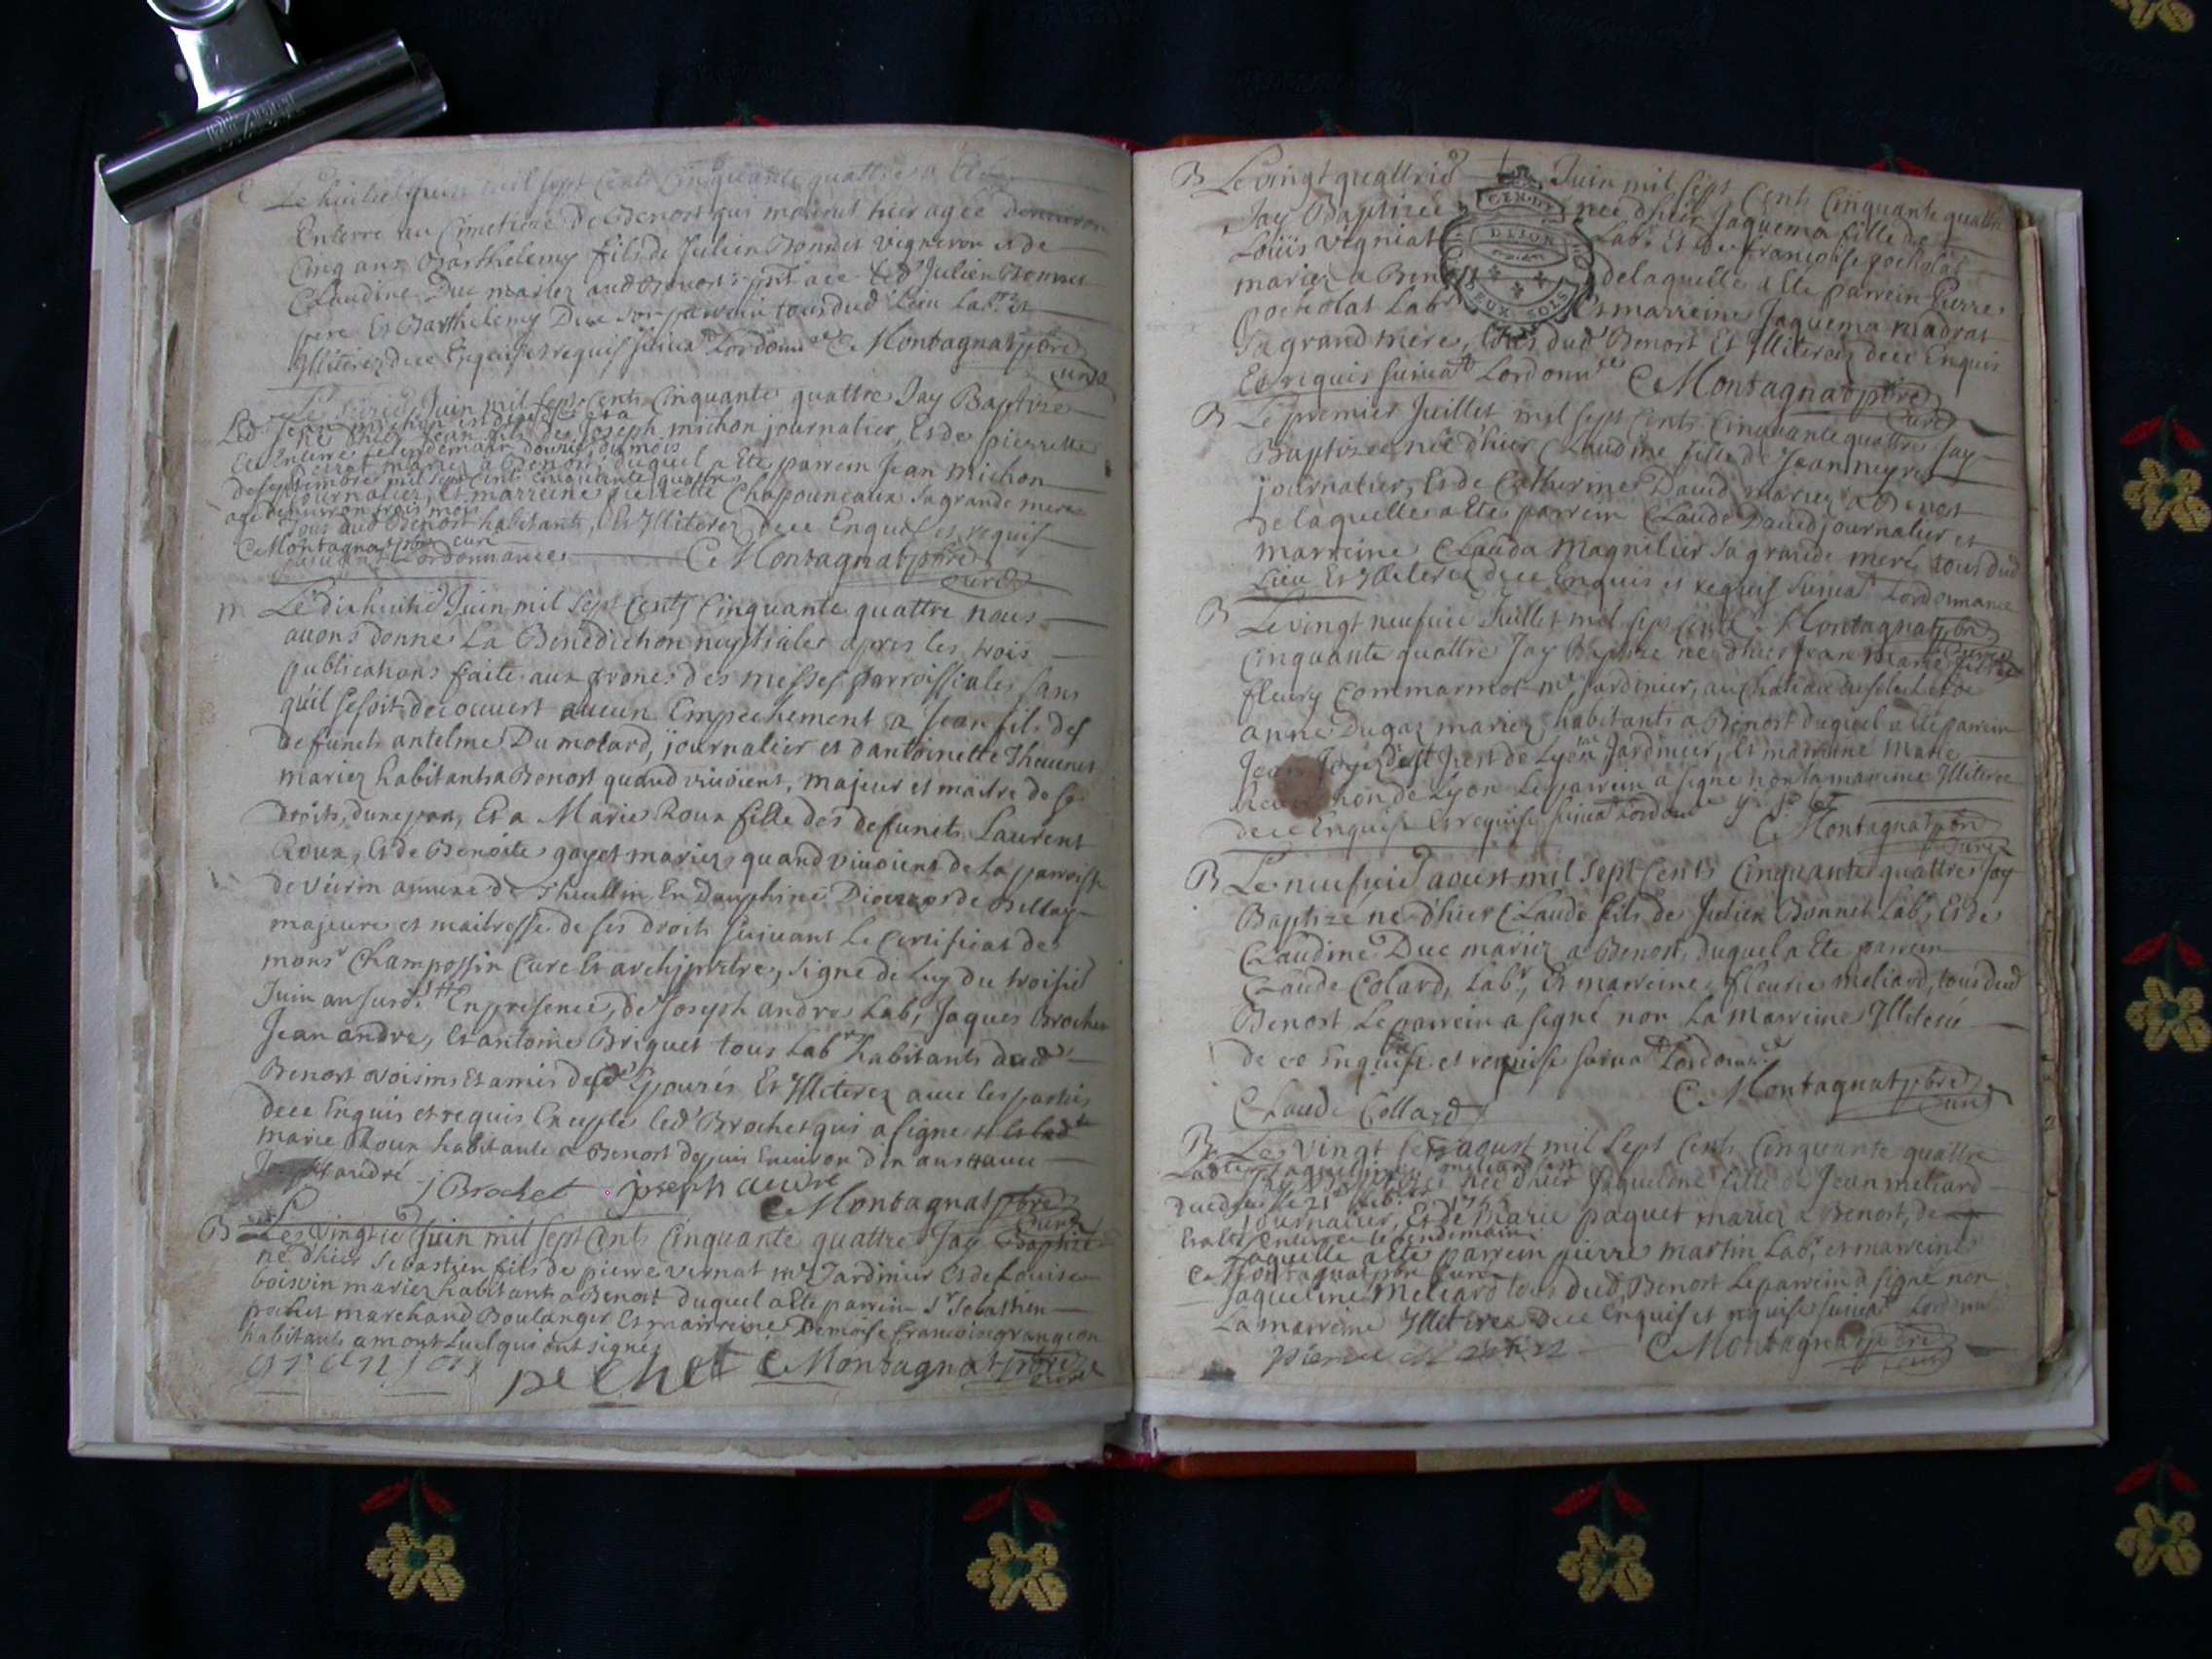 Le huitie Juin mil sept Cents Cinquante quattre a Ete
Enterré au Cimetiere De Benost qui mourut hier agée denviron
Cinq ans Barthelemy fils de Julien Bonnet Vigneron et de
Claudine Duc mariez aud Benost; led Julien Bonnet
pere Et Barthelemy Duc son parrein tous dud Lieu Labrs Et
Illiterez dece Enquis et requis suivat Lordonnce C Montagnat pbre
curé
Juin mil sept Cents Cinquante quattre Jay Baptize
Led Jean michon est
né d'hier Jean fils de Joseph michon journalier, Et de pierrette
mariez a Benost, duquel a Ete parrein Jean michon
de septembre mil sept Cents Cinquante quattre
journalier, Et marreine pierrette Chapouneaux sa grande mere
agé denviron trois mois
Tous aud Benost habitants, Et Illiterez dece Enquis et requis
C Montagnat pbre curé
suivant Lordonnance C Montagnat pbre
curé
m Le dix huitie Juin mil sept Cents Cinquante quattre nous
avons donné La Benediction nuptiale apres les trois
publications faite aux prones des messes parroissiales sans
qu'il se soit decouvert aucun Empechement a Jean fils des
defunets antelme Dumolard, journalier et d'antoinette Thaunet
mariez habitants a Benost quand vivoient, majeur et maitre de se
droits, dune part, Et a Marie Roux fille des defunets Laurent
Roux, Et de Benoite gayet mariez quand vivoient de La parroisse
de Veirin annexe de Thuillin En Dauphiné Dioceze de Bellay
majeure et maitresse de ses droits suivant Le Certificat de
monsr Champossin Curé Et archiprêtre, signé de Luy du troisie
Juin an susd. # En presence, de Joseph andré Labr, Jaques Brochet
Jean andré, Et antoine Briquet tous Labrs habitants dud
Benost voisins Et amis desd Epourés Et Illiterez avec les parties
dece Enquis et requis Excepté led Brochet qui a signé # Et ladte
marie Roux habitante a Benost depuis Environ dix ans # avec
Joseph andré
j Brochet joseph andré
C Montagnat pbre
curé
B Le vingtie Juin mil sept Cents Cinquante quattre Jay Baptizé
né d'hier Sebastien fils de pierre Vernat me Jardinier Et de Louise
boisvin mariez habitants a Benost duquel a Ete parrein Sr Sebastien
pechet marchand Boulanger Et marreine Demoise francoise grangeon
habitants a montLuel qui ont signéz
grangeon pechet C Montagnat pbre
curé
B Le vingt quattrie Juin mil sept Cents Cinquante quattre
Jay Baptizée née d'hier Jaquema fille de
Loüis Vigniat Labr Et de francoise pocholat
mariez a Benost delaquelle a Ete parrein Pierre
pocholat Labr Et marreine Jaquema madras
sa grand mere, tous dud Benost Et Illiterez dece Enquis
Et requis suivat Lordonnce C Montagnat pbre
curé
DIJON
DEUX SOLS
B Le premier Juillet mil sept Cents Cinquante quattre Jay
Baptizée née d'hier Claudine fille de Jean neyret
journalier, Et de Catherine David mariez a Benost
de laquelle a Ete parrein Claude David journalier et
marreine Clauda Magnilier sa grande mere tous dud
Lieu Et Illiterez dece Enquis et requis suivat Lordonnance
C Montagnat pbre
curé
B Le vingt neufvie Juillet mil sept Cents
Cinquante quattre Jay Baptizé né d'hier Jean marie fils de
fleury Commarmot me Jardinier, au chateau et de
anne Dugaz mariez habitants a Benost duquel a Ete parrein
Jean de Lyon me Jardinier, Et marreine marie
de Lyon Le parrein a signé non la marreine Illiterée
dece Enquise Et requise suivat Lordonce
C Montagnat pbre
curé
B Le neufvie aoust mil sept Cents Cinquante quattre Jay
Baptizé né d'hier Claude fils de Julien Bonnet Labr, Et de
Claudine Duc mariez a Benost, duquel a Ete parrein
Claude Colard, Labr, Et marreine fleurie meliard, tous dud
Benost Le parrein a signé non La Marreine Illiterée
de ce Enquise et requise suivat Lordonnce
C Montagnat pbre
curé
Claude Collard
B Le vingt sept aoust mil sept Cents Cinquante quattre
Ladte Jaqueline meliard est
Jay Baptizée née d'hier Jaqueline fille de Jean meliard
1765
journalier, Et de Marie paquet mariez a Benost, de
Et a Ete Enterrée le lendemain
Laquelle a Ete parrein pierre martin Labr, et marreine
C Montagnat pbre curé
Jaqueline Meliard tous dud Benost Le parrein a signé non
La marreine Illiterée dece Enquise et requise suivat Lordonnce
pierre Martin C Montagnat pbre
curé